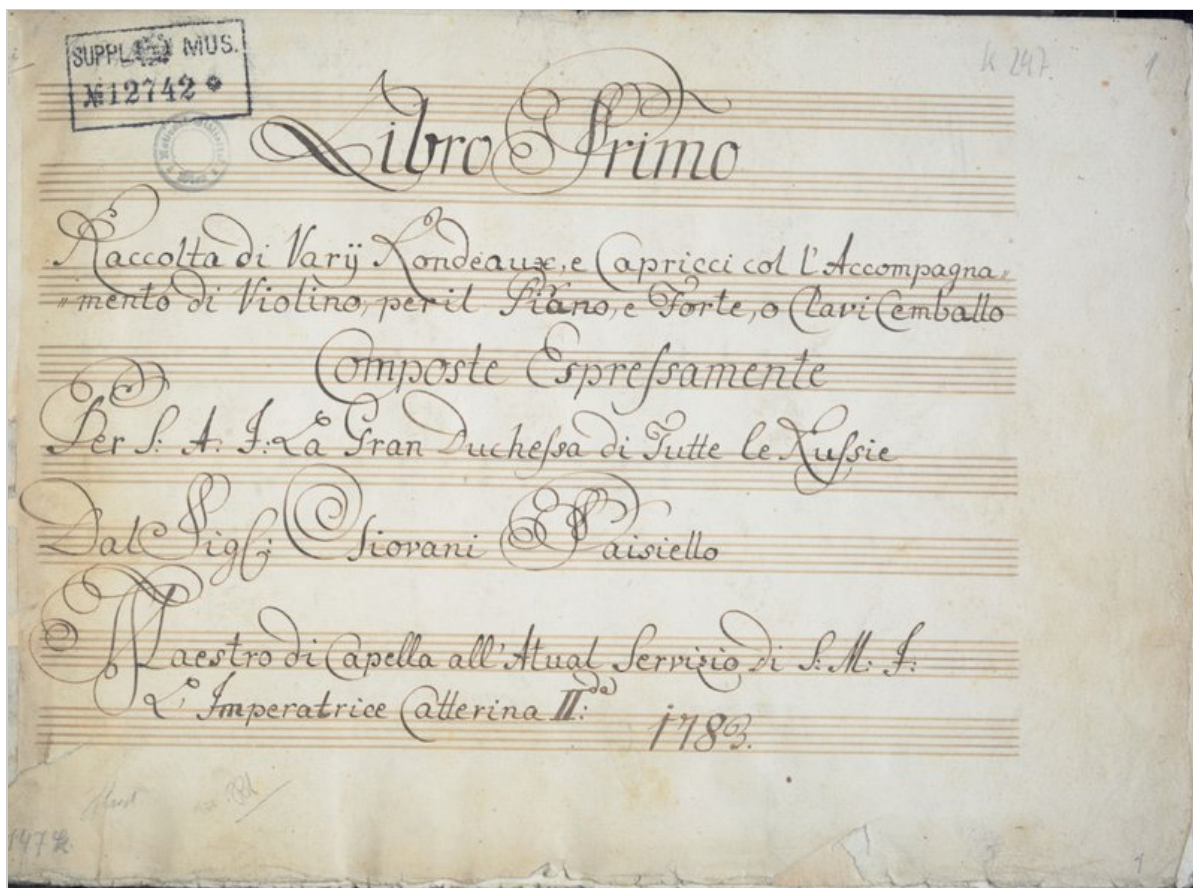 SUPPL. MUS.
№ 12742 *
k 247.
1
Libro Primo
Raccolta di Varÿ Rondeaux, e Capricci col l'Accompagna„
„mento di Violino, per il Piano, e Forte, o Clavi Cemballo
Composte Espreſsamente
Per S: A: I: La Gran Ducheſsa di Tutte le Ruſsie
Dal Sig:r Giovani Paisiello
Maestro di Capella all'Atual Servizio di S: M: I:
L'Imperatrice Catterina II:da
1783.
1